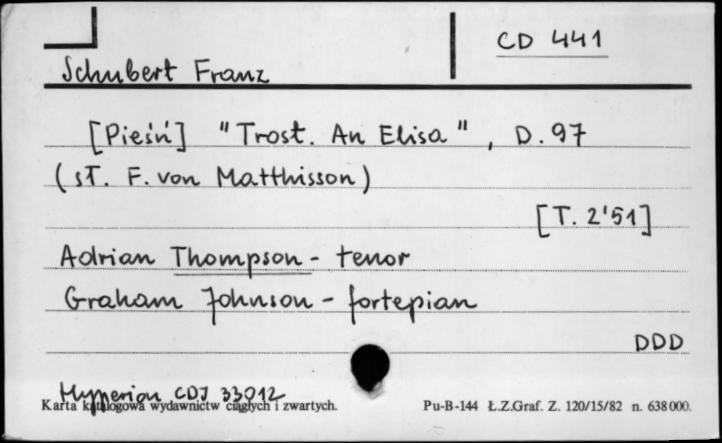 CD 441
Schubert Franz
[Pieśń] "Trost. An Elisa", D. 97
(sł. F. von Matthisson)
[T. 2'51]
Adrian Thompson - tenor
Graham Johnson - fortepian
DDD
Hyperion CDJ 33012
Karta katalogowa wydawnictw ciągłych i zwartych. Pu-B-144 Ł.Z.Graf. Z. 120/15/82 n. 638000.